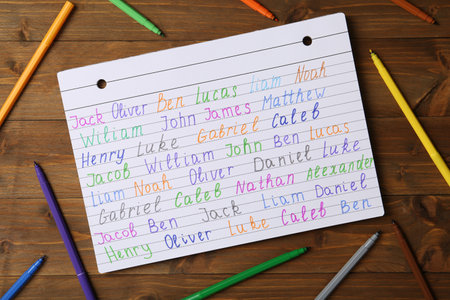 Jack Oliver Ben Lucas Liam Noah
William John James Matthew
Henry Luke Gabriel Caleb
Jacob William John Ben Lucas
Liam Noah Oliver Daniel Luke
Gabriel Caleb Nathan Alexander
Jacob Ben Jack Liam Daniel
Henry Oliver Luke Caleb Ben